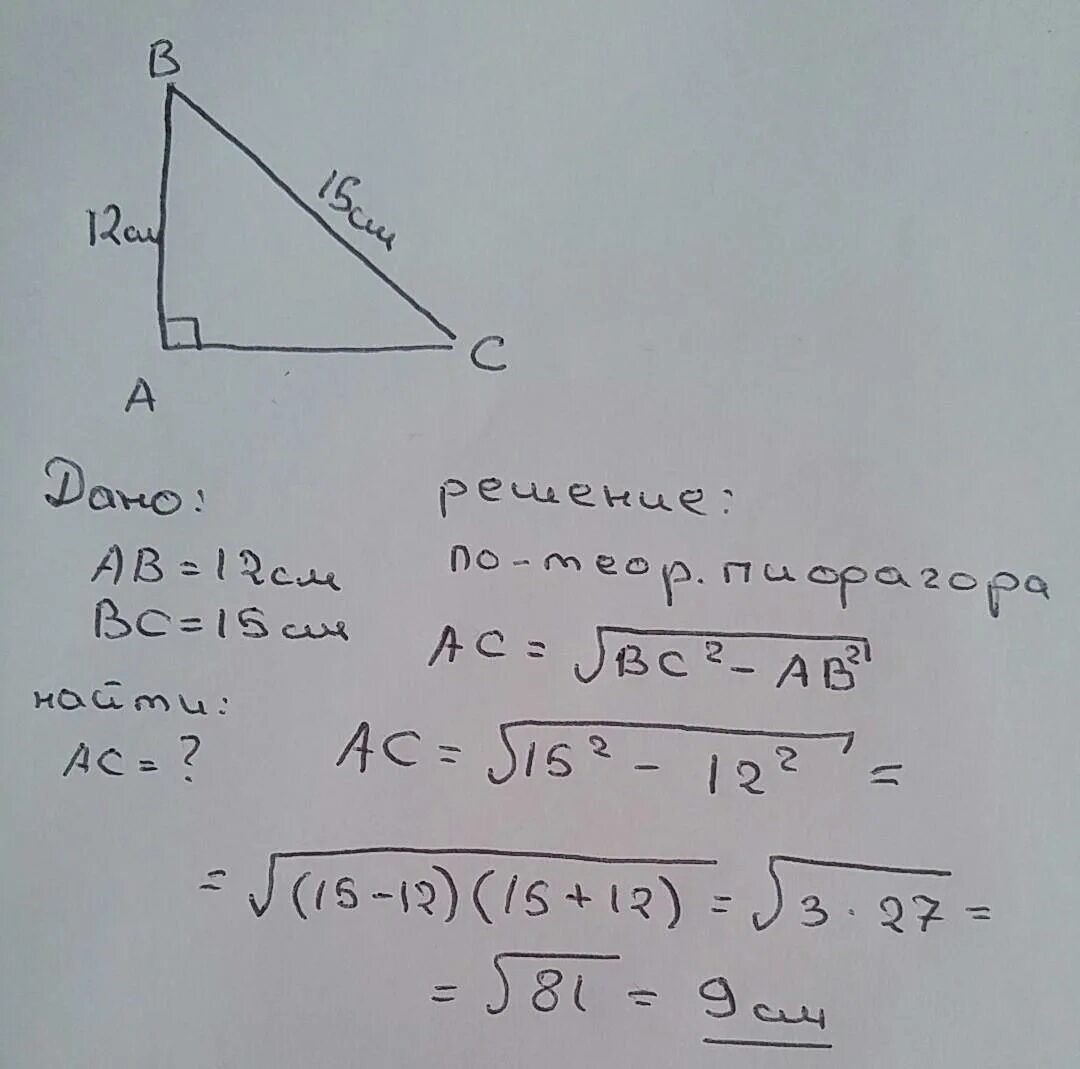 B
15см
12см
A
C
Дано:
AB = 12см
BC = 15см
найти:
AC = ?
решение:
по-теор. пиорагора
AC = √BC² - AB²
AC = √15² - 12² =
= √(15-12)(15+12) = √3 · 27 =
= √81 = 9см